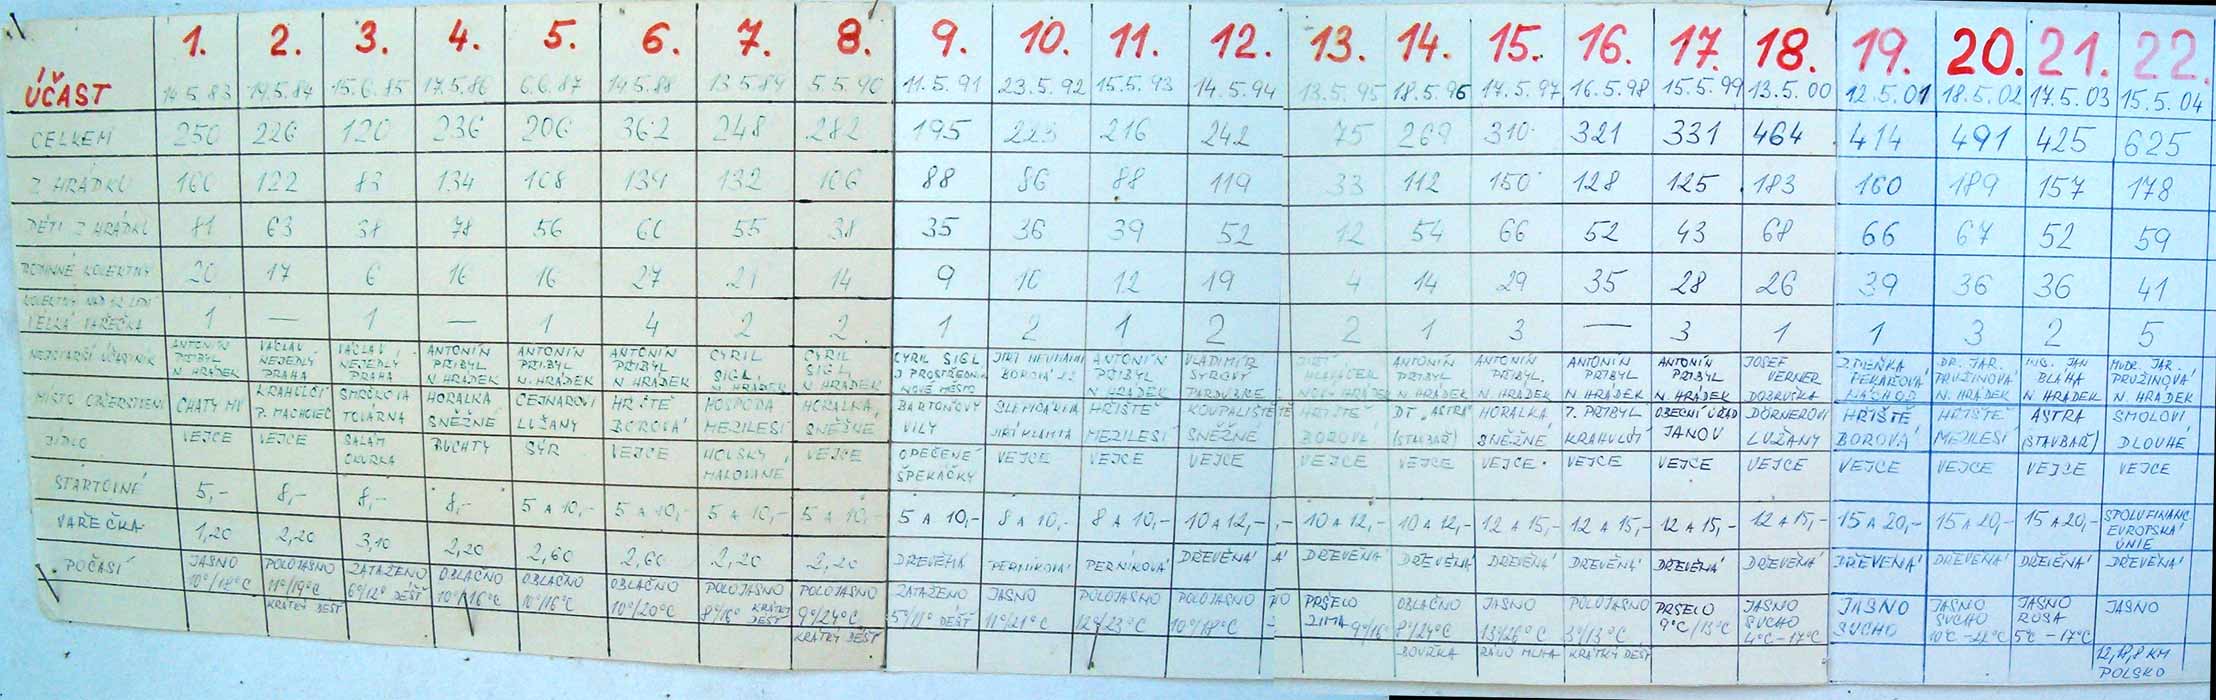 1. 2. 3. 4. 5. 6. 7. 8. 9. 10. 11. 12. 13. 14. 15. 16. 17. 18. 19. 20. 21. 22.
ÚČAST 14.5.83 19.5.84 15.6.85 17.5.86 6.6.87 14.5.88 13.5.89 5.5.90 11.5.91 23.5.92 15.5.93 14.5.94 13.5.95 18.5.96 17.5.97 16.5.98 15.5.99 13.5.00 12.5.01 18.5.02 17.5.03 15.5.04
CELKEM 250 226 120 236 206 362 248 282 195 223 216 242 75 269 310 321 331 464 414 491 425 625
Z HRÁDKU 160 122 83 134 108 139 132 106 88 86 88 119 33 112 150 128 125 183 160 189 157 178
DĚTI Z HRÁDKU 81 63 38 78 56 60 55 38 35 36 39 52 12 54 66 52 43 68 66 67 52 59
RODINNÉ KOLEKTIVY 20 17 6 16 16 27 21 14 9 10 12 19 4 14 29 35 28 26 39 36 36 41
VĚLKÁ VAŘEČKA 1 — 1 — 1 4 2 2 1 2 1 2 2 1 3 — 3 1 1 3 2 5
NEJSTARŠÍ ÚČASTNÍK
ANTONÍN PŘIBYL N HRÁDEK
VÁCLAV NEJEDLÝ PRAHA
VÁCLAV NEJEDLÝ PRAHA
ANTONÍN PŘIBYL N HRÁDEK
ANTONÍN PŘIBYL N. HRÁDEK
ANTONÍN PŘIBYL N HRÁDEK
CYRIL SIGL, N HRÁDEK
CYRIL SIGL, N HRÁDEK
CYRIL SIGL
NOVÉ MĚSTO
JIŘÍ
BOROVÁ
ANTONÍN PŘIBYL N HRÁDEK
VLADIMÍR SYROVÝ PARDUBICE
NOVÝ HRÁDEK
ANTONÍN PŘIBYL N HRÁDEK
ANTONÍN PŘIBYL. N HRÁDEK
ANTONÍN PŘIBYL N HRÁDEK
ANTONÍN PŘIBYL N. HRÁDEK
JOSEF VERNER DOBRUŠKA
PEKAŘOVÁ NÁCHOD
DR. JAR. PRUŽINOVÁ N. HRÁDEK
ING. JAN BLÁHA N HRÁDEK
MUDR. JAR. PRUŽINOVÁ N. HRÁDEK
MÍSTO OBČERSTVENÍ
CHATY MV
KRAHULČÍ P. MACHOVEC
SMRČKOVÁ TOVÁRNA
HORALKA SNĚŽNÉ
CEJNAROVI LUŽANY
HŘIŠTĚ BOROVÁ
HOSPODA MEZILESÍ
HORALKA, SNĚŽNÉ
BARTOŇOVY VILY
HŘIŠTĚ MEZILESÍ
KOUPALIŠTĚ SNĚŽNÉ
HŘIŠTĚ BOROVÁ
DT „ASTRA" (STAVBAŘ)
HORALKA SNĚŽNÉ
P. PŘIBYL KRAHULČÍ
OBECNÍ ÚŘAD JANOV
DÖRNEROVI LUŽANY
HŘIŠTĚ BOROVÁ
HŘIŠTĚ MEZILESÍ
ASTRA (STAVBAŘ)
SMOLOVI DLOUHÉ
JÍDLO
VEJCE
VEJCE
SALÁM OKURKA
BUCHTY
SÝR
VEJCE
VEJCE
OPEČENÉ ŠPEKÁČKY
VEJCE VEJCE VEJCE VEJCE VEJCE VEJCE VEJCE VEJCE VEJCE VEJCE VEJCE VEJCE VEJCE
STARTOVNÉ 5,- 8,- 8,- 8,- 5 A 10,- 5 A 10,- 5 A 10,- 5 A 10,- 5 A 10,- 8 A 10,- 8 A 10,- 10 A 12,- ,- 10 A 12,- 10 A 12,- 12 A 15,- 12 A 15,- 12 A 15,- 12 A 15,- 15 A 20,- 15 A 20,- 15 A 20,- SPOLUFINANC. EVROPSKÁ UNIE
VAŘEČKA 1,20 2,20 3,10 2,20 2,60 2,60 2,20 2,20 DŘEVĚNÁ PERNÍKOVÁ PERNÍKOVÁ DŘEVĚNÁ Á DŘEVĚNÁ DŘEVĚNÁ DŘEVĚNÁ DŘEVĚNÁ DŘEVĚNÁ DŘEVĚNÁ DŘEVĚNÁ DŘEVĚNÁ DŘEVĚNÁ DŘEVĚNÁ
POČASÍ
JASNO 10°/18°C
POLOJASNO 11°/19°C KRÁTKÝ DÉŠŤ
ZATAŽENO 6°/12° DÉŠŤ
OBLAČNO 10°/16°C
OBLAČNO 10°/16°C
OBLAČNO 10°/20°C
POLOJASNO 8°/16° KRÁTKÝ DÉŠŤ
POLOJASNO 9°/24°C KRÁTKÝ DÉŠŤ
ZATAŽENO 5°/11° DÉŠŤ
JASNO 11°/21°C
POLOJASNO 12°/23°C
POLOJASNO 10°/18°C
PRŠELO ZIMA 9°/16°
OBLAČNO 8°/24°C BOUŘKA
JASNO 13°/26°C RÁNO MLHA
POLOJASNO 3°/13°C KRÁTKÝ DÉŠŤ
PRŠELO 9°C/13°C
JASNO SUCHO 4°C-17°C
JASNO SUCHO
JASNO SUCHO 10°C-22°C
JASNO ROSA 5°C-17°C
JASNO
12,18,8 KM POLSKO